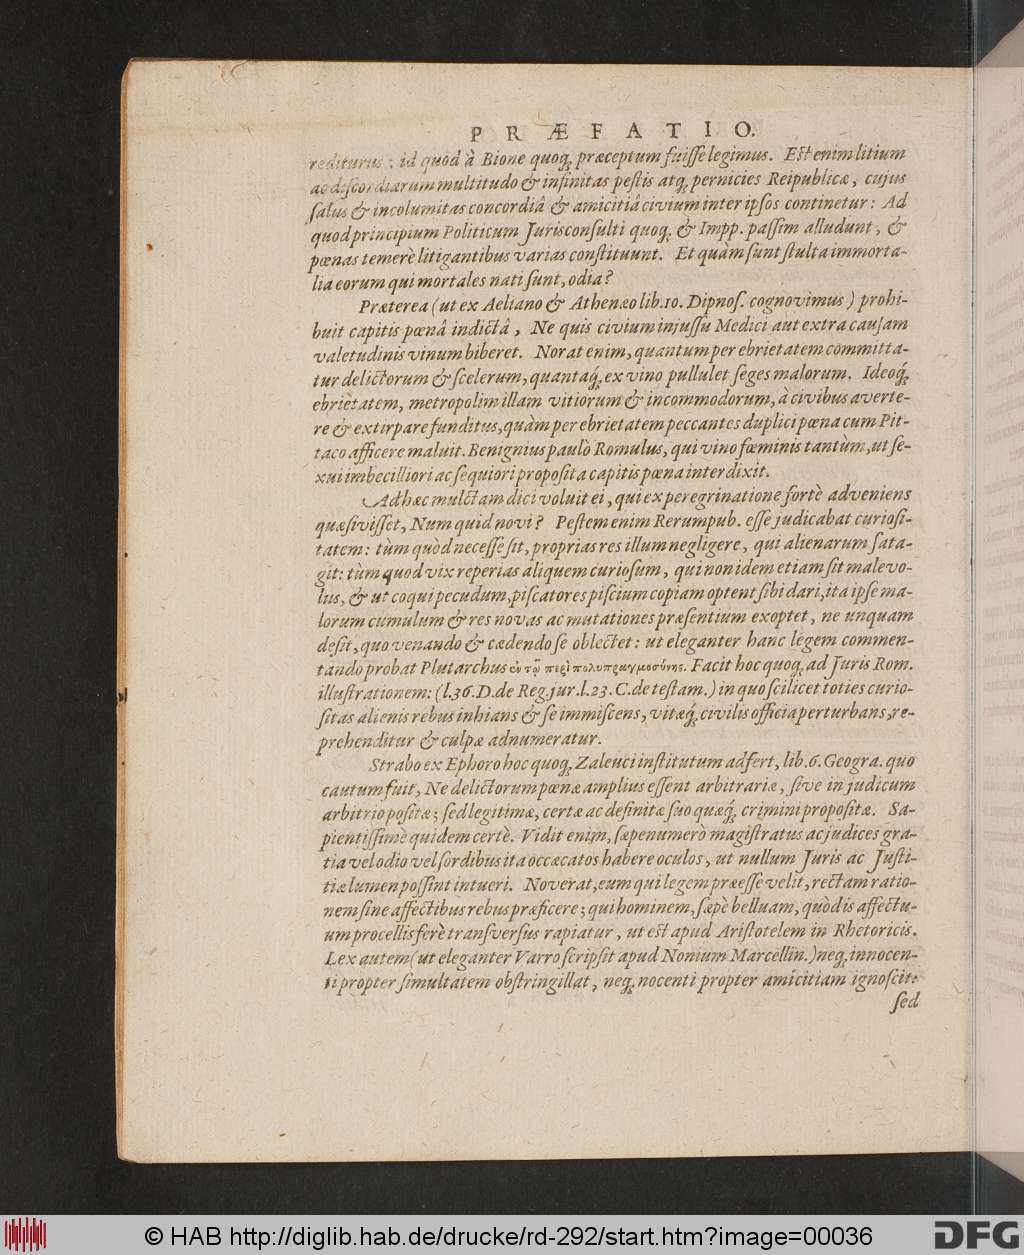 PRÆFATIO.
rediturus: id quod à Bione quoq́; præceptum fuiſſe legimus. Eſt enim litium
ac diſcordiarum multitudo & infinitas peſtis atq́; pernicies Reipublicæ, cujus
ſalus & incolumitas concordiâ & amicitiâ civium inter ipſos continetur: Ad
quod principium Politicum Jurisconſulti quoq́; & Impp. paſſim alludunt, &
pœnas temerè litigantibus varias conſtituunt. Et quàm ſunt ſtulta immorta-
lia eorum qui mortales nati ſunt, odia?
Præterea (ut ex Aeliano & Athenæo lib. 10. Dipnoſ. cognovimus) prohi-
buit capitis pœnâ indictâ, Ne quis civium injuſſu Medici aut extra cauſam
valetudinis vinum biberet. Norat enim, quantum per ebrietatem committa-
tur delictorum & ſcelerum, quantaq́; ex vino pullulet ſeges malorum. Ideoq́;
ebrietatem, metropolim illam vitiorum & incommodorum, à civibus averte-
re & extirpare funditus, quàm per ebrietatem peccantes duplici pœna cum Pit-
taco afficere maluit. Benignius paulò Romulus, qui vino fœminis tantùm, ut ſe-
xui imbecilliori ac ſequiori propoſita capitis pœna interdixit.
Ad hæc mulctam dici voluit ei, qui ex peregrinatione fortè adveniens
quæſiviſſet, Num quid novi? Peſtem enim Rerumpub. eſſe judicabat curioſi-
tatem: tùm quòd neceſſe ſit, proprias res illum negligere, qui alienarum ſata-
git: tùm quod vix reperias aliquem curioſum, qui non idem etiam ſit malevo-
lus, & ut coqui pecudum, piſcatores piſcium copiam optent ſibi dari, ita ipſe ma-
lorum cumulum & res novas ac mutationes præſentium exoptet, ne unquam
deſit, quo venando & cædendo ſe oblectet: ut eleganter hanc legem commen-
tando probat Plutarchus ἐν τῷ περὶ πολυπραγμοσύνης. Facit hoc quoq́; ad Juris Rom.
illuſtrationem: (l. 36. D. de Reg. jur. l. 23. C. de teſtam.) in quo ſcilicet toties curio-
ſitas alienis rebus inhians & ſe immiſcens, vitæq́; civilis officia perturbans, re-
prehenditur & culpæ adnumeratur.
Strabo ex Ephoro hoc quoq́; Zaleuci inſtitutum adfert, lib. 6. Geogra. quo
cautum fuit, Ne delictorum pœnæ amplius eſſent arbitrariæ, ſive in judicum
arbitrio poſitæ; ſed legitimæ, certæ ac definitæ ſuo quæq́; crimini propoſitæ. Sa-
pientiſſimè quidem certè. Vidit enim, ſæpenumerò magiſtratus ac judices gra-
tia vel odio vel ſordibus ita occæcatos habere oculos, ut nullum Juris ac Juſti-
tiæ lumen poſſint intueri. Noverat, eum qui legem præeſſe velit, rectam ratio-
nem ſine affectibus rebus præficere; qui hominem, ſæpè belluam, quòd is affectu-
um procellis ferè tranſverſus rapiatur, ut eſt apud Ariſtotelem in Rhetoricis.
Lex autem (ut eleganter Varro ſcripſit apud Nonium Marcellin.) neq́; innocen-
ti propter ſimultatem obſtringillat, neq́; nocenti propter amicitiam ignoſcit:
ſed
© HAB http://diglib.hab.de/drucke/rd-292/start.htm?image=00036
DFG